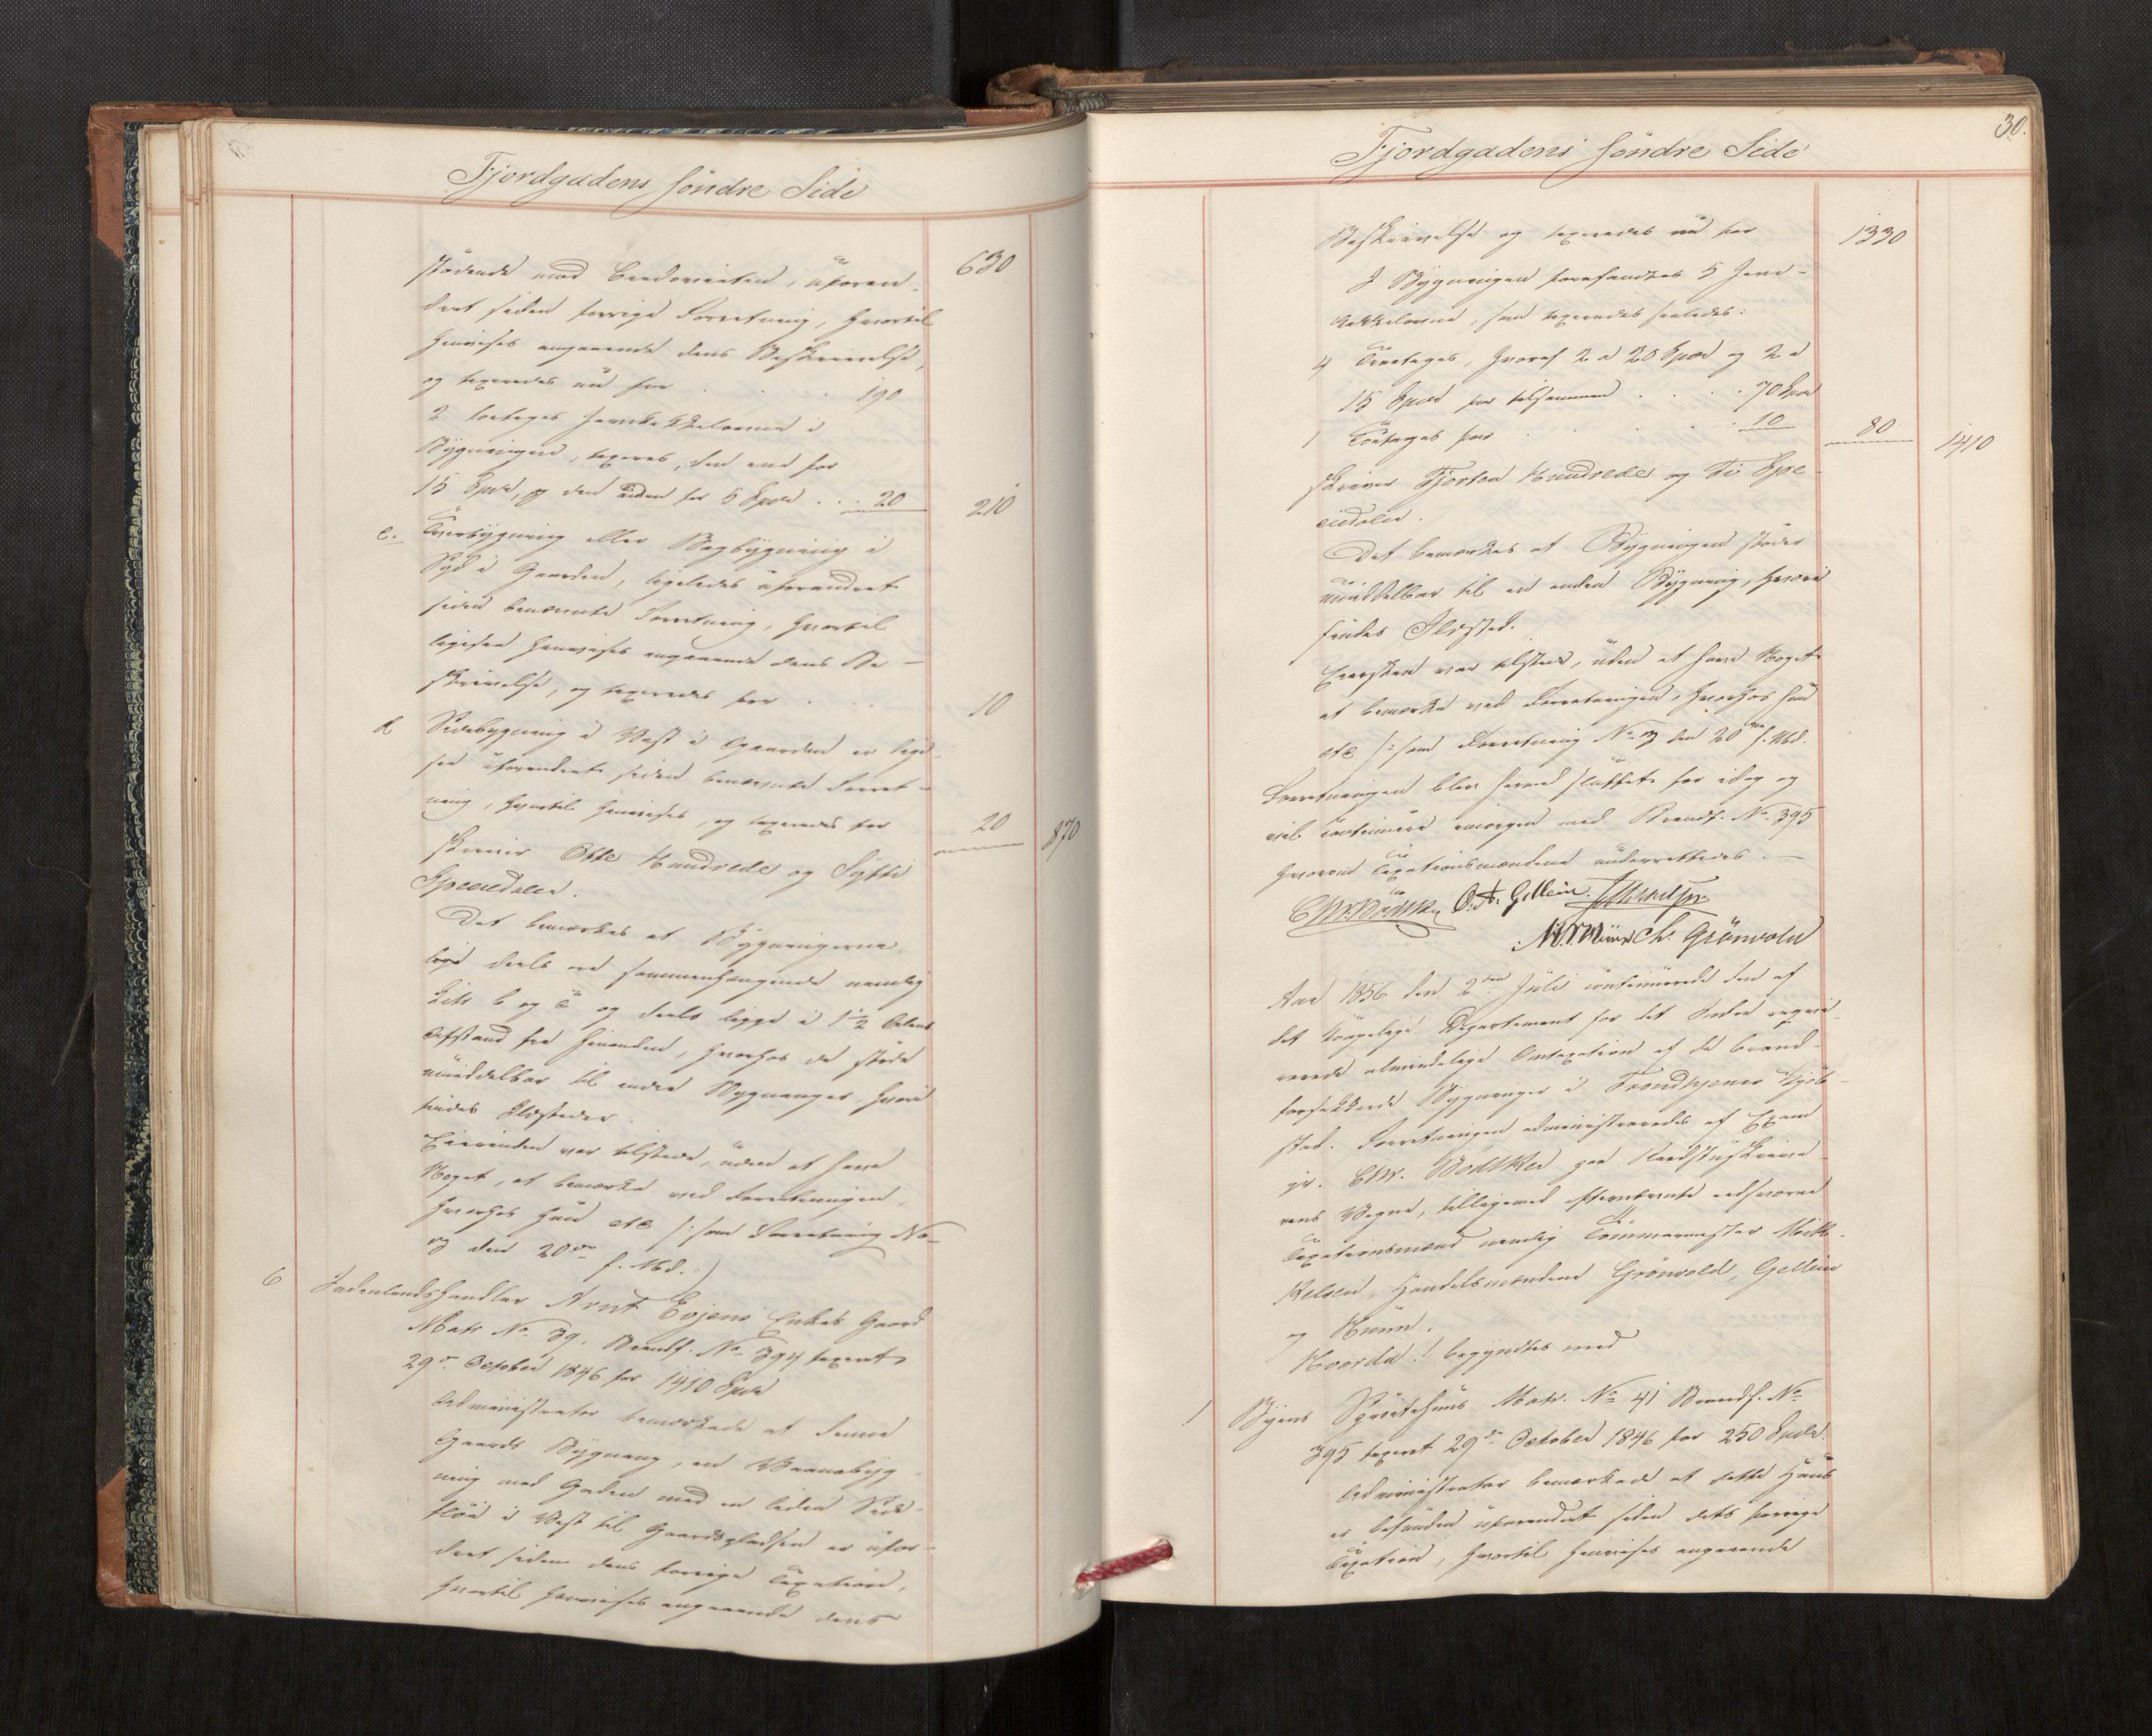 Fjordgadens söndre Side
stödende mod Bradverikten, uforan- 630
dret siden forrige Forretning, hvortil
henvises angaaende dens Beskrivelse,
og taxeredes nu for . . . 190
2 toetages Jernkakkelovne i
Bygningen, taxeres, den ene for
15 Spd, og den anden for 5 Spd . . 20 210
c. Tverbygning eller Bagbygning i
Syd i Gaarden, ligeledes uforandret
siden benævnte Forretning, hvortil
ligesaa henvises angaaende dens Be-
skrivelse, og taxeredes for . . . 10
d Sidebygning i Vest i Gaarden er lige-
saa uforandret siden benævnte Forret-
ning, hvortil henvises, og taxeredes for 20 870
skriver Otte Hundrede og Sytti
Speciedaler.
Det bemærkes at Bygningerne
deels ere sammenhængende nemlig
Litr b og c og deels ligge i 1½ Alens
Afstand fra hinanden, hvorhos de støde
umiddelbar til andre Bygninger, hvori
findes Ildsteder.
Eierinden var tilstede, uden at have
Noget, at bemærke ved Forretningen,
hvorhos hun etc /: som Forretning No
3 den 20de f. Md.
6 Indenlandshandler Arnt Evjens Enkes Gaard
Matr No 39. Brandf. No 394 taxeret
29de October 1846 for 1410 Spd
Administrator bemærkede at denne
Gaards Bygning, en Vaanebyg-
ning mod Gaden med en liden Side-
fløi i Vest til Gaardspladsen er ufor-
dret siden dens forrige Taxation,
hvortil henvises angaaende dens
30.
Fjordgadens söndre Side
Beskrivelse og taxeredes nu for 1330
I Bygningen forefandtes 5 Jern-
kakkelovne, som taxeredes saaledes:
4 Treetages, hvoraf 2 a 20 Spd og 2 a
15 Spd for tilsammen . . . 70 Spd
1 Toetages for . . . 10 80 1410
skriver Fjorten Hundrede og Ti Spe-
ciedaler.
Det bemærkes at Bygningen støder
umiddelbar til en anden Bygning, hvori
findes Ildsted.
Eiersken var tilstede, uden at have Noget
at bemærke ved Forretningen, hvorhos hun
etc /: som Forretning No 3 den 20de f. Md.
Forretningen blev herved sluttet for idag og
vil continuere imorgen med Brandf. No 395
hvorom Taxationsmændene underrettedes. —
Chr. Bödtker O. A. Gellein.
Ch. Grönvold
Aar 1856 den 2den Juli continuerede den af
det Kongelige Departement for det Indre reqvi-
rerede almindelige Omtaxation af de brand-
forsikkrede Bygninger i Trondhjems Kjöb-
stad. Forretningen administreredes af Exam.
jur. Chr. Bödtker paa Raadstuskrive-
rens Vegne, tilligemed efternævnte eedsvorne
Taxationsmænd nemlig Tömmermester Mick-
kelsen, Handelsmændene Grönvold, Gellein
og Huun.
Hvorda! begyndtes med
1 Byens Spröitehuus Matr. No 41 Brandf. No
395 taxeret 29de October 1846 for 250 Spd.
Administrator bemærkede at dette Huus
er befunden uforandret siden dets forrige
Taxation, hvortil henvises angaaende